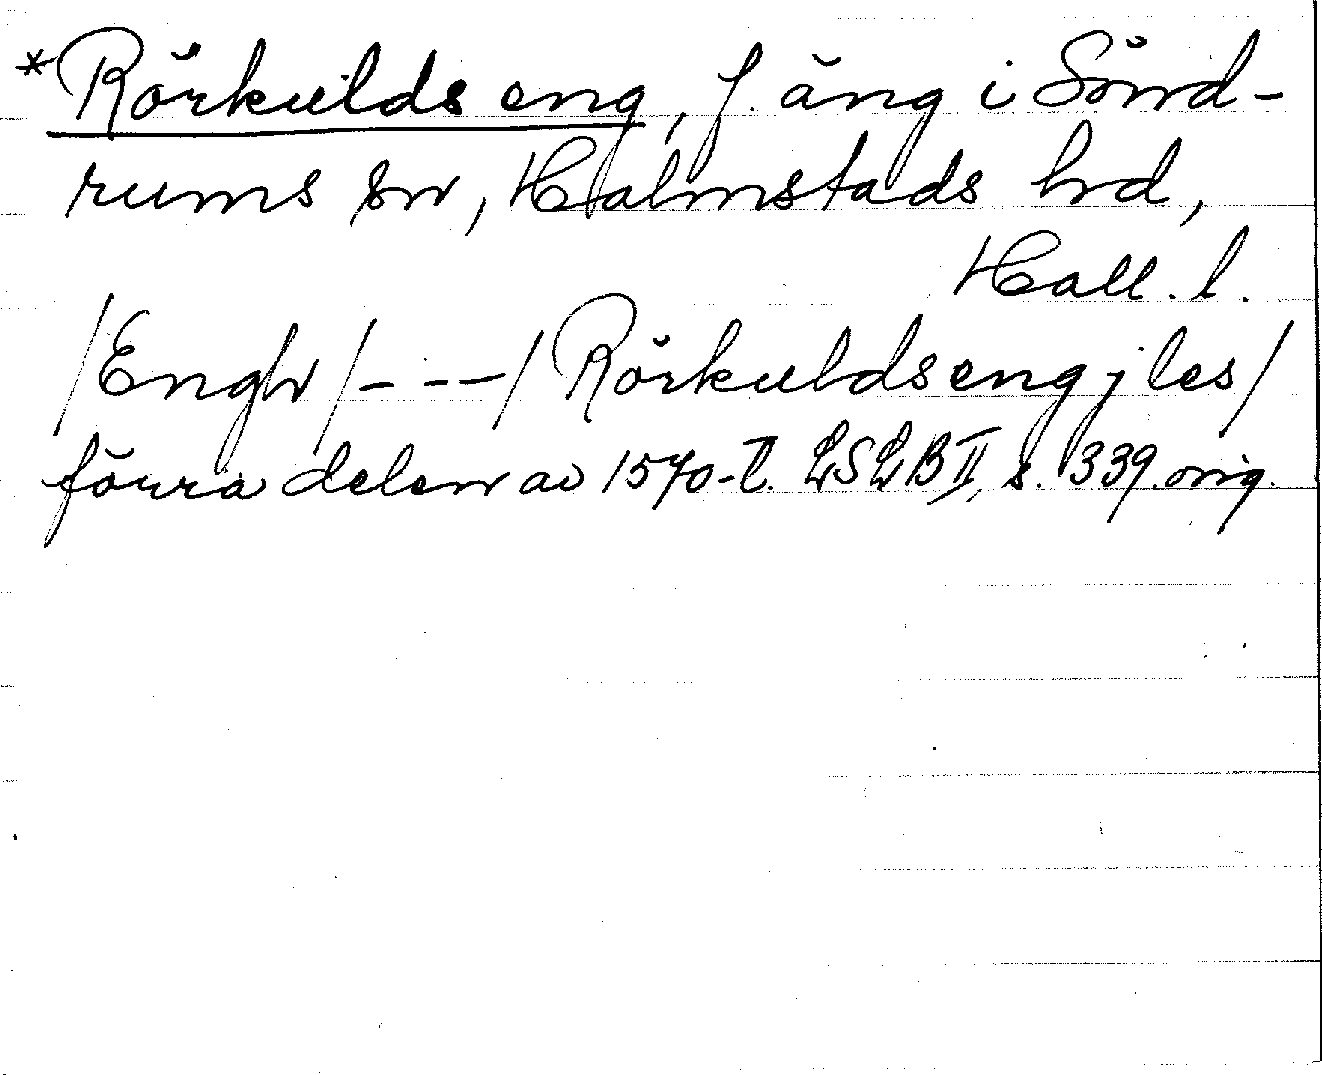 *Rörkulds eng, f. äng i Sönd-
rums sn, Halmstads hd,
Hall. l.
/Engh/ - - - / Rörkuldseng jles/
förra delen av 1570-t. LSLB II, s. 339. orig.